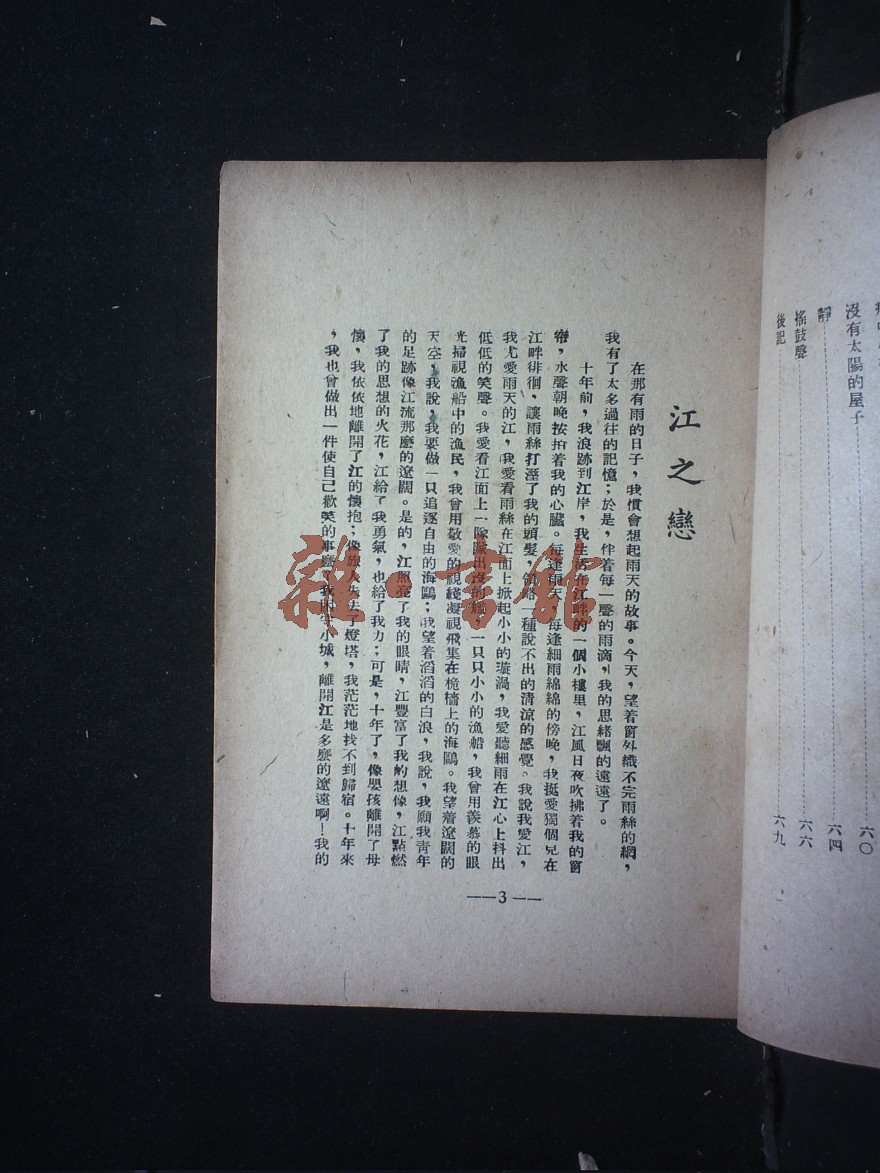 沒有太陽的屋子……六〇
靜……六四
搖鼓聲……六六
後記……六九
江之戀
在那有雨的日子，我慣會想起雨天的故事。今天，望着窗外織不完雨絲的網，
我有了太多過往的記憶；於是，伴着每一聲的雨滴，我的思緒飄的遠遠了。
十年前，我浪跡到江岸，我生活在江畔的一個小樓里，江風日夜吹拂着我的窗
帘，水聲朝晚按拍着我的心臟。每逢雨天，每逢細雨綿綿的傍晚，我挺愛獨個兒在
江畔徘徊，讓雨絲打溼了我的頭髮，領略一種說不出的清涼的感覺。我說我愛江，
我尤愛雨天的江，我愛看雨絲在江面上掀起小小的漩渦，我愛聽細雨在江心上抖出
低低的笑聲。我愛看江面上一隊隊出沒的，一只只小小的漁船，我曾用羨慕的眼
光掃視漁船中的漁民，我曾用敬愛的視綫凝視飛集在桅檣上的海鷗。我望着遼闊的
天空，我說，我要做一只追逐自由的海鷗；我望着滔滔的白浪，我說，我願我青年
的足跡像江流那麼的遼闊。是的，江照亮了我的眼睛，江豐富了我的想像，江點燃
了我的思想的火花，江給了我勇氣，也給了我力；可是，十年了，像嬰孩離開了母
懷，我依依地離開了江的懷抱；像旅人失去了燈塔，我茫茫地找不到歸宿。十年來
，我也曾做出一件使自己歡笑的事麼？我困守小城，離開江是多麼的遼遠啊！我的
——3——
雜·書館